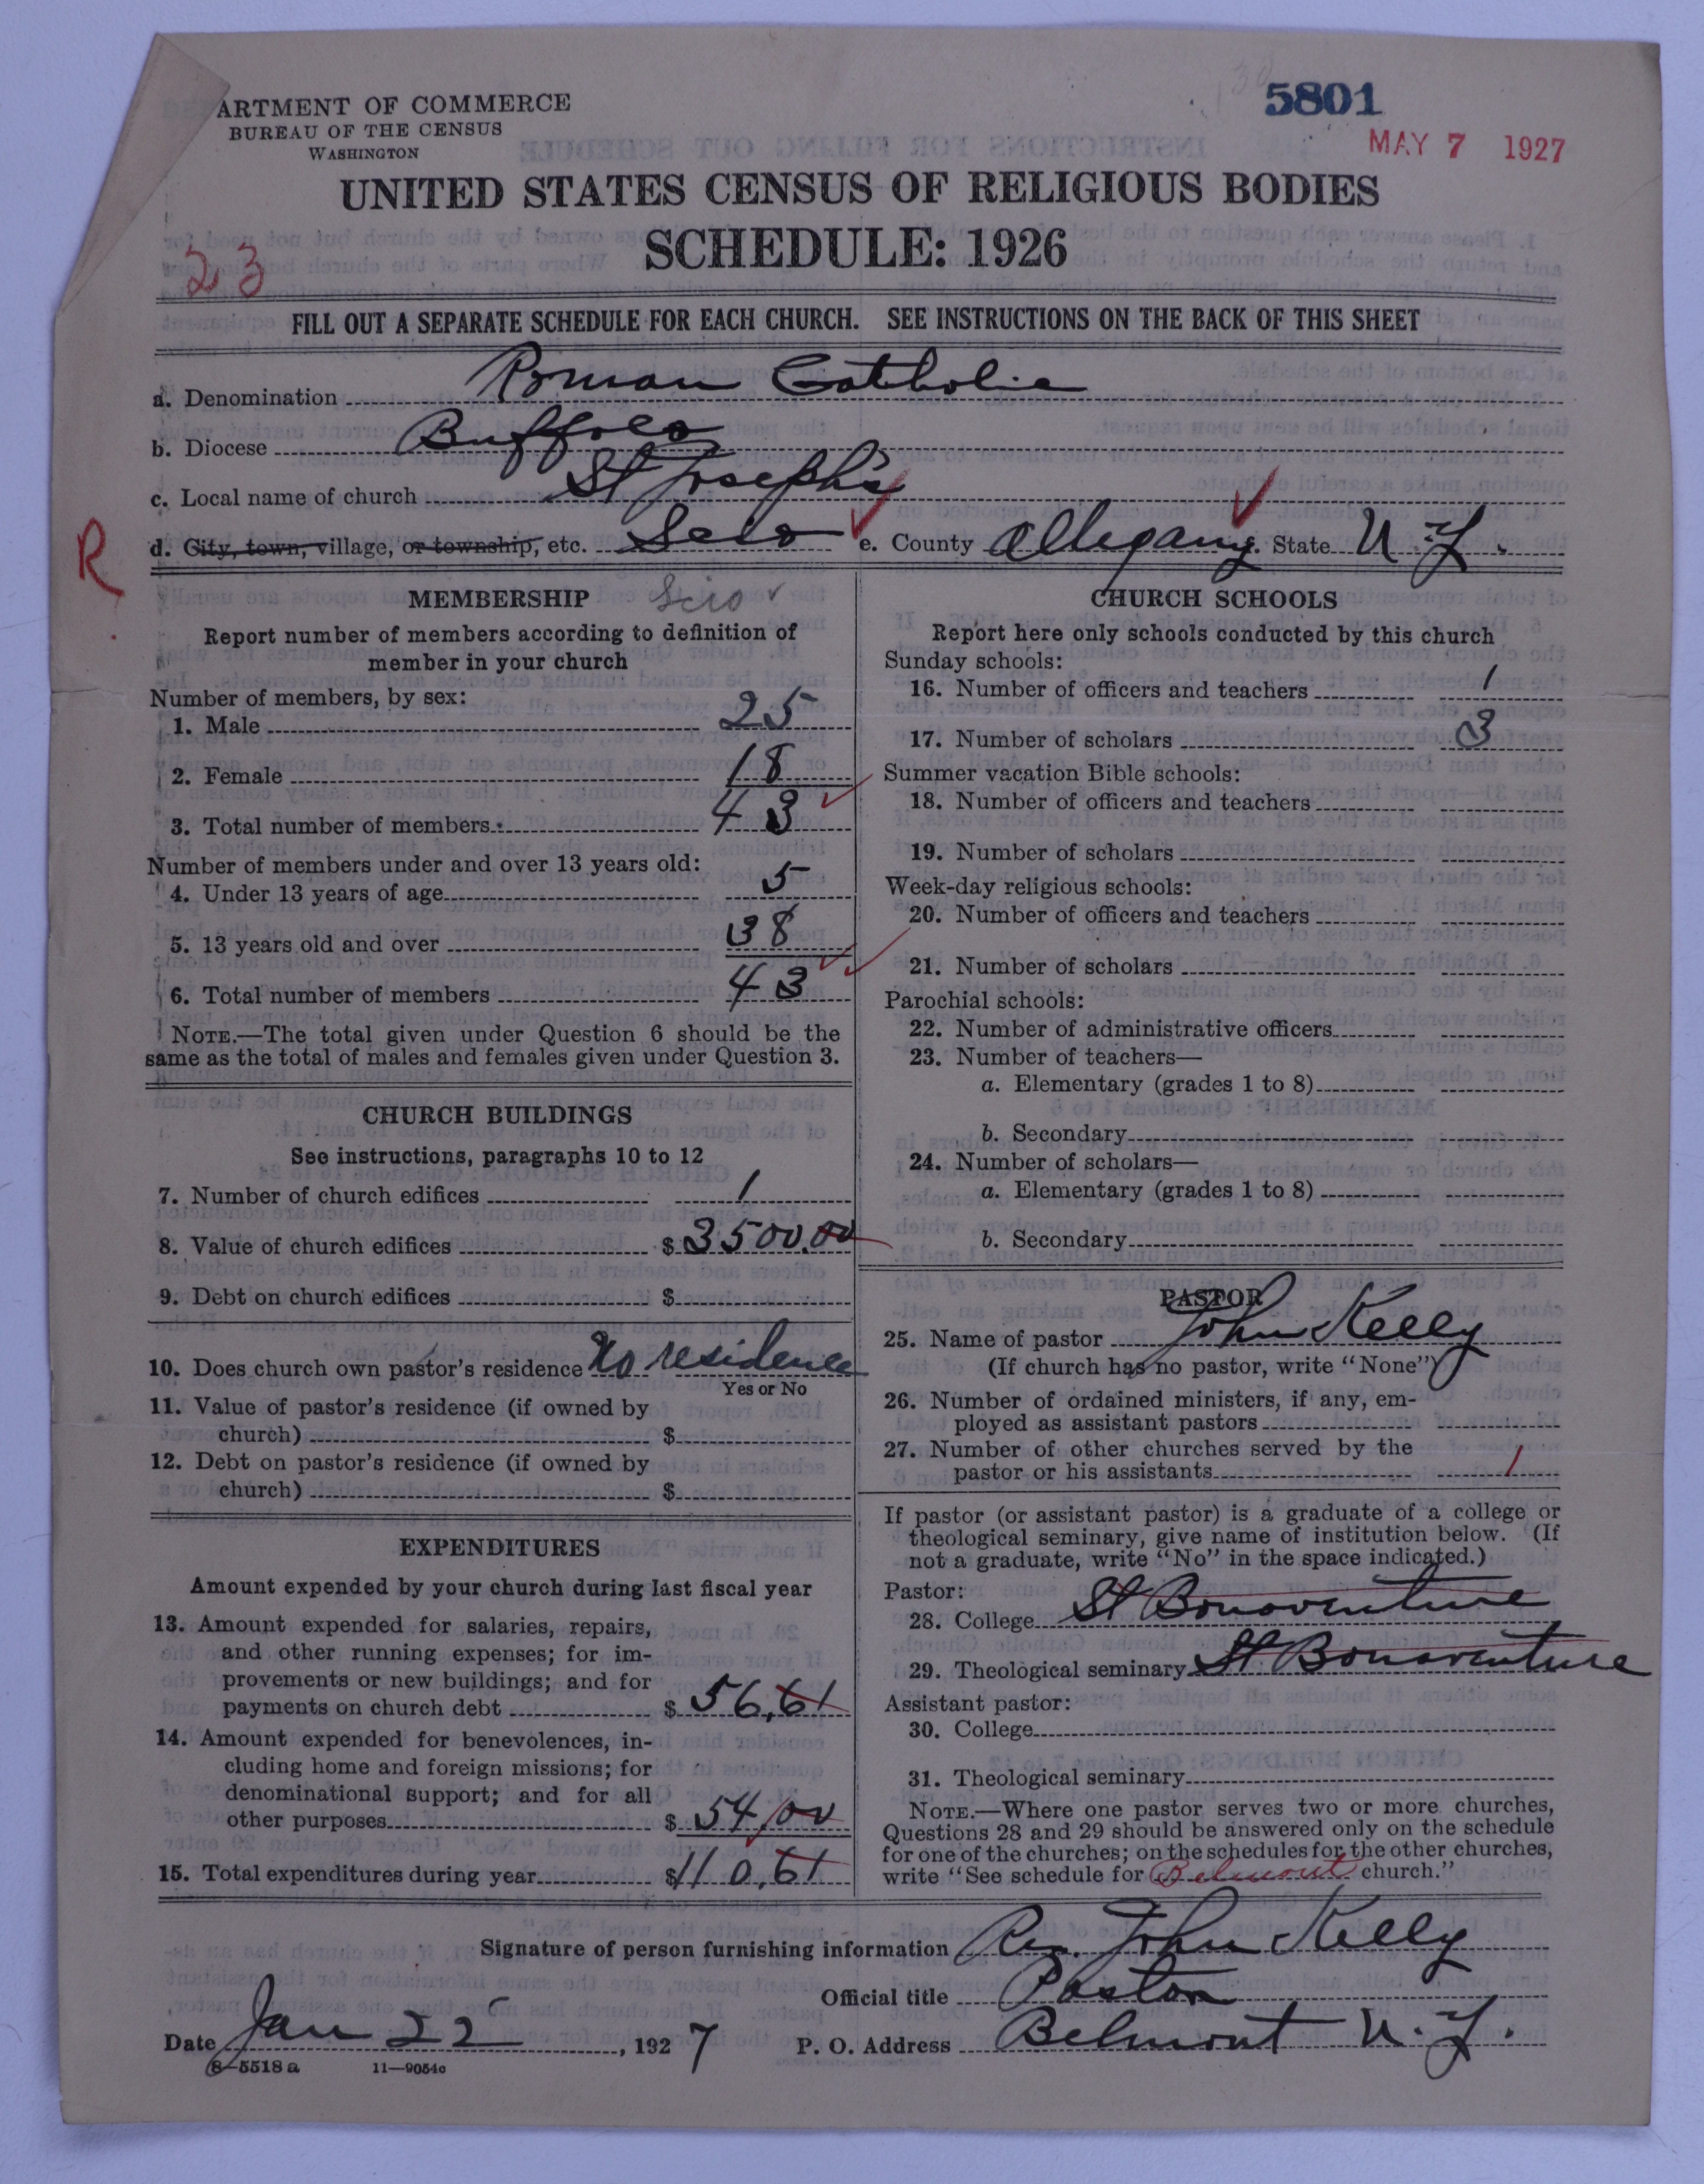 5801
MAY 7 1927
ARTMENT OF COMMERCE
BUREAU OF THE CENSUS
WASHINGTON
UNITED STATES CENSUS OF RELIGIOUS BODIES
SCHEDULE: 1926
23
FILL OUT A SEPARATE SCHEDULE FOR EACH CHURCH. SEE INSTRUCTIONS ON THE BACK OF THIS SHEET
a. Denomination Roman Catholic
b. Diocese Buffalo
c. Local name of church St Joseph's
R
d. City, town, village, or township, etc. Scio e. County Allegany. State N.Y.
MEMBERSHIP Scio
Report number of members according to definition of
member in your church
Number of members, by sex:
1. Male 25
2. Female 18
3. Total number of members 43
Number of members under and over 13 years old:
4. Under 13 years of age 5
5. 13 years old and over 38
6. Total number of members 43
NOTE.—The total given under Question 6 should be the
same as the total of males and females given under Question 3.
CHURCH BUILDINGS
See instructions, paragraphs 10 to 12
7. Number of church edifices 1
8. Value of church edifices $ 3500.00
9. Debt on church edifices $
10. Does church own pastor's residence No residence
Yes or No
11. Value of pastor's residence (if owned by
church) $
12. Debt on pastor's residence (if owned by
church) $
EXPENDITURES
Amount expended by your church during last fiscal year
13. Amount expended for salaries, repairs,
and other running expenses; for im-
provements or new buildings; and for
payments on church debt $ 56.61
14. Amount expended for benevolences, in-
cluding home and foreign missions; for
denominational support; and for all
other purposes $ 54.00
15. Total expenditures during year $110.61
CHURCH SCHOOLS
Report here only schools conducted by this church
Sunday schools:
16. Number of officers and teachers 1
17. Number of scholars 3
Summer vacation Bible schools:
18. Number of officers and teachers
19. Number of scholars
Week-day religious schools:
20. Number of officers and teachers
21. Number of scholars
Parochial schools:
22. Number of administrative officers
23. Number of teachers—
a. Elementary (grades 1 to 8)
b. Secondary
24. Number of scholars—
a. Elementary (grades 1 to 8)
b. Secondary
PASTOR
25. Name of pastor John Kelly
(If church has no pastor, write "None")
26. Number of ordained ministers, if any, em-
ployed as assistant pastors
27. Number of other churches served by the
pastor or his assistants 1
If pastor (or assistant pastor) is a graduate of a college or
theological seminary, give name of institution below. (If
not a graduate, write "No" in the space indicated.)
Pastor:
28. College St Bonaventure
29. Theological seminary St Bonaventure
Assistant pastor:
30. College
31. Theological seminary
NOTE.—Where one pastor serves two or more churches,
Questions 28 and 29 should be answered only on the schedule
for one of the churches; on the schedules for the other churches,
write "See schedule for Belmont church."
Signature of person furnishing information Rev. John Kelly
Official title Pastor
Date Jan 25, 1927 P. O. Address Belmont N.Y.
8-5518 a 11-9054c